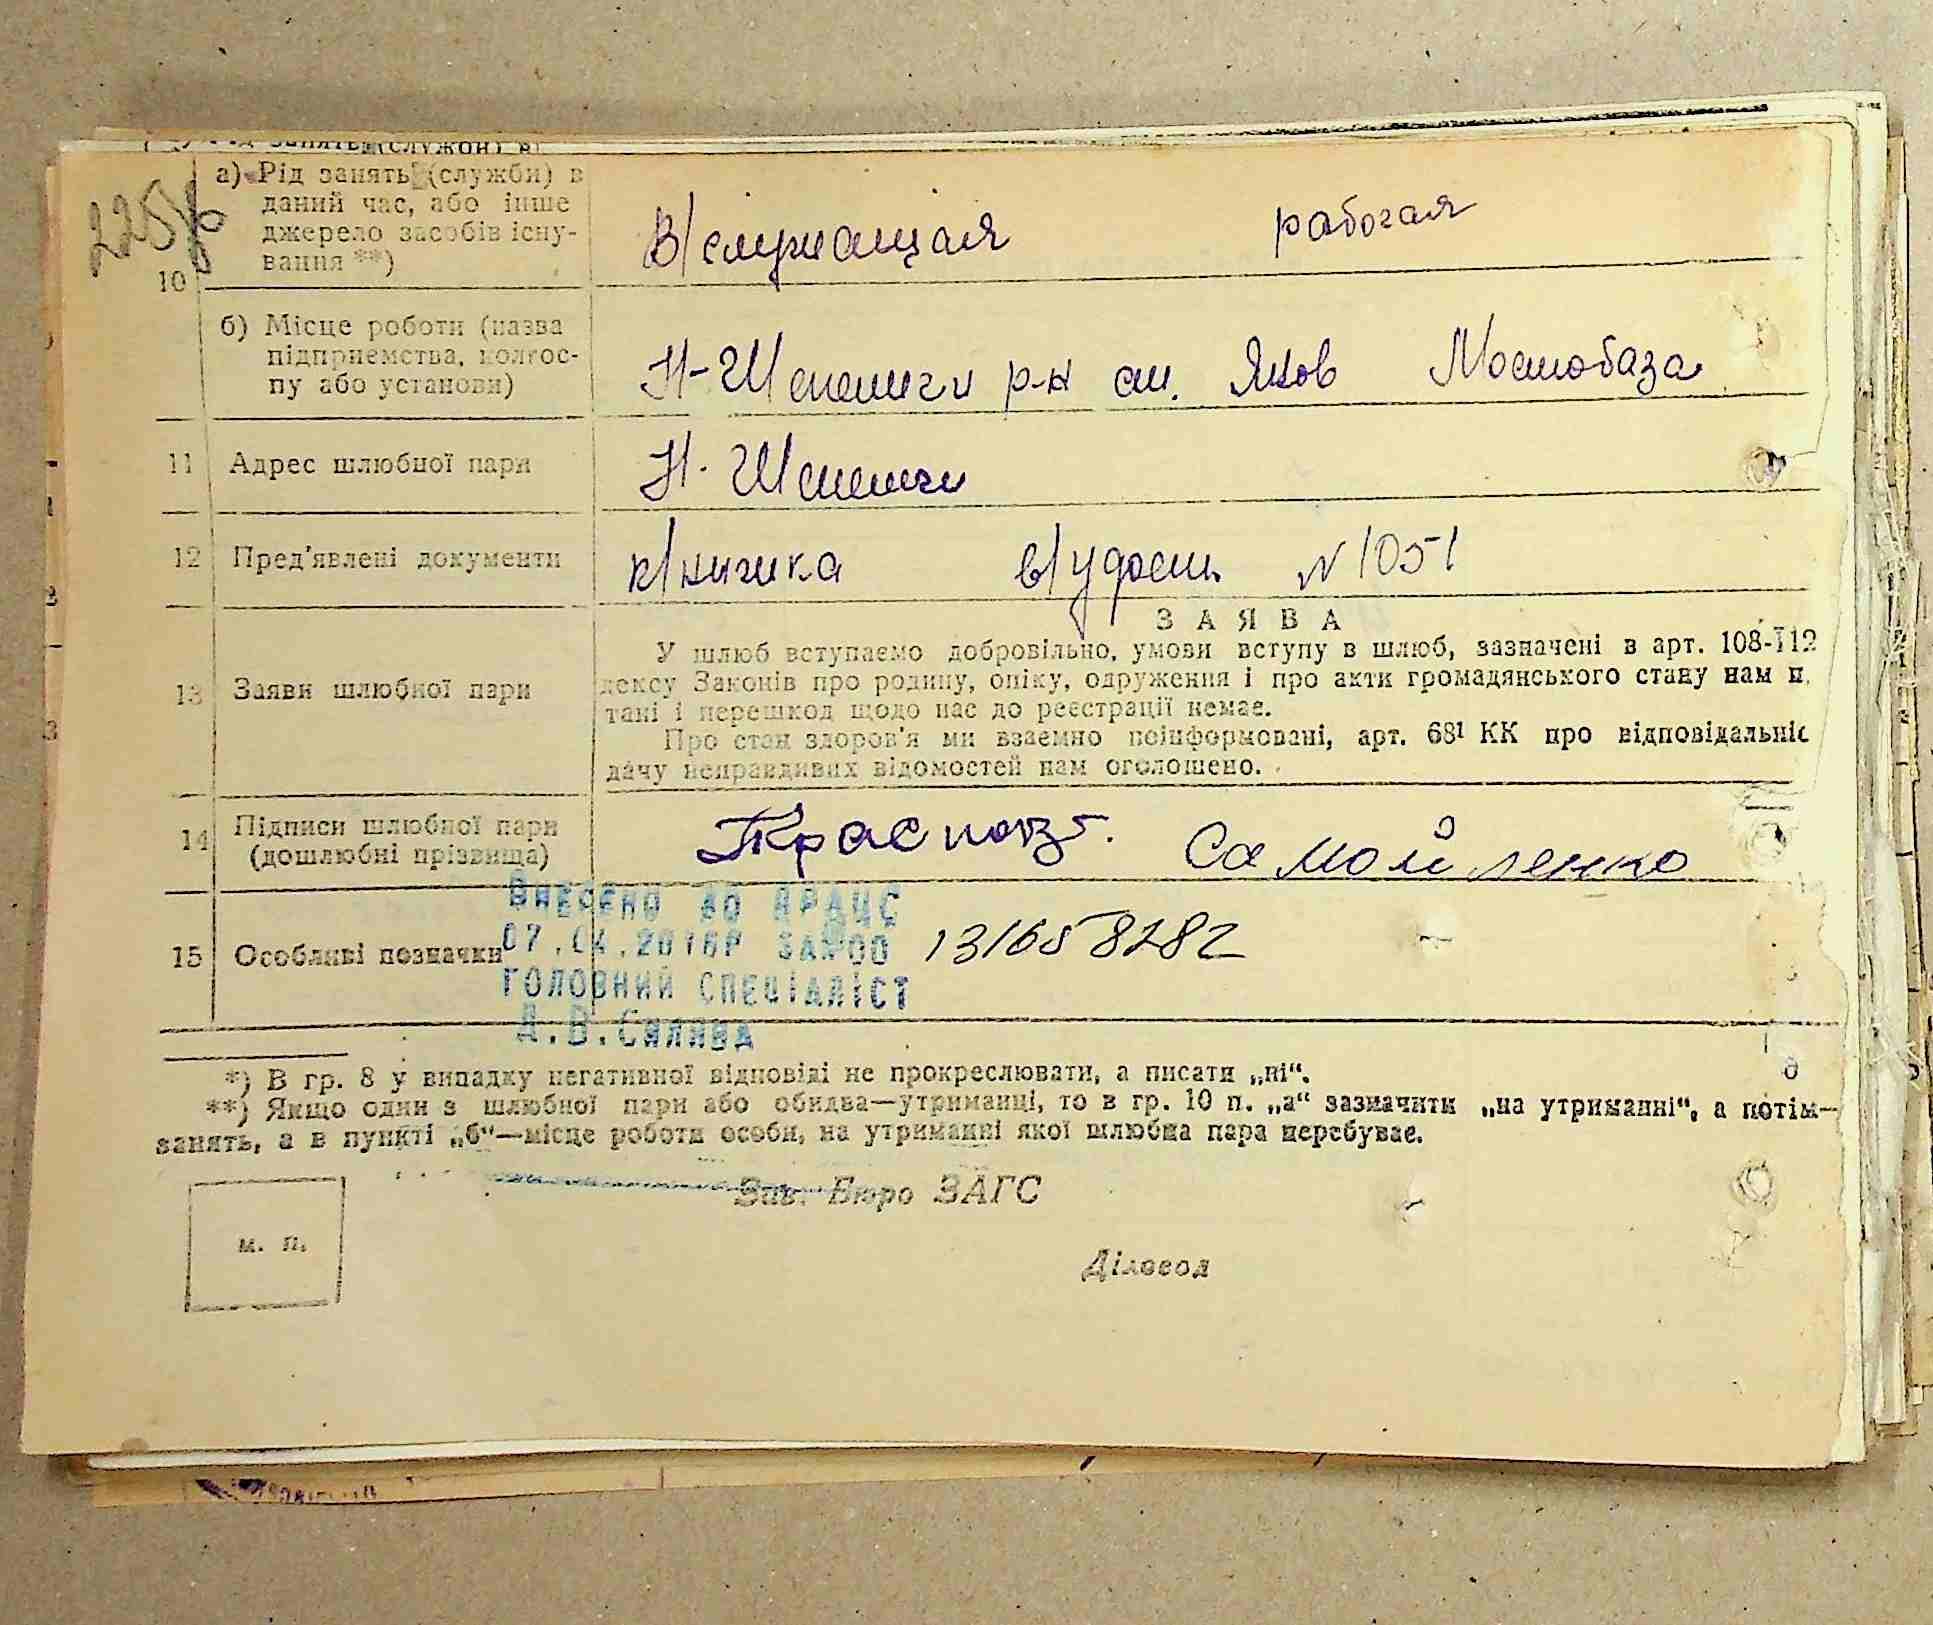 225
а) Рід занять (служби) в
даний час, або інше
джерело засобів існу-
вання **)
В/служащая рабочая
10
б) Місце роботи (назва
підприємства, колгос-
пу або установи)
Н-Шепетичи р-н ст. Яков Мостобаза
11 Адрес шлюбної пари
12 Пред'явлені документи
к/книжка в/удост N 1051
ЗАЯВА
13 Заяви шлюбної пари
У шлюб вступаємо добровільно, умови вступу в шлюб, зазначені в арт. 108-112
дексу Законів про родину, опіку, одруження і про акти громадянського стану нам п
тані і перешкод щодо нас до реєстрації немає.
Про стан здоров'я ми взаємно поінформовані, арт. 68¹ КК про відповідальніс
дачу неправдивих відомостей нам оголошено.
14 Підписи шлюбної пари
(дошлюбні прізвища)
Самойленко
15 Особливі позначки
ВНЕСЕНО ДО ДРАЦС
07.04.2016Р ЗА №00 131658282
ГОЛОВНИЙ СПЕЦІАЛІСТ
Д.В.Силива
*) В гр. 8 у випадку негативної відповіді не прокреслювати, а писати „ні“.
**) Якщо один з шлюбної пари або обидва—утриманці, то в гр. 10 п. „а“ зазначити „на утриманні“, а потім—
занять, а в пункті „б“—місце роботи особи, на утриманні якої шлюбна пара перебуває.
Зав. Бюро ЗАГС
м. п.
Діловод